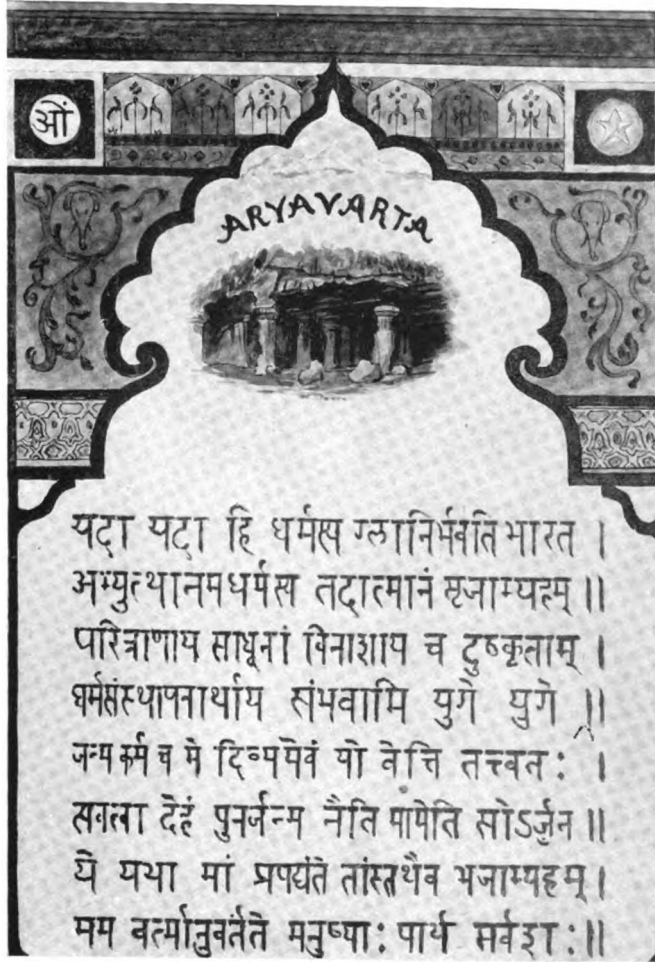 ओं
ARYAVARTA
यदा यदा हि धर्मस्य ग्लानिर्भवति भारत ।
अभ्युत्थानमधर्मस्य तदात्मानं सृजाम्यहम् ॥
परित्राणाय साधूनां विनाशाय च दुष्कृताम् ।
धर्मसंस्थापनार्थाय संभवामि युगे युगे ॥
जन्म कर्म च मे दिव्यमेवं यो वेत्ति तत्त्वतः ।
देहं पुनर्जन्म नैति मामेति सोऽर्जुन ॥
ये यथा मां प्रपद्यंते तांस्तथैव भजाम्यहम् ।
मम वर्त्मानुवर्तते मनुष्याः पार्थ